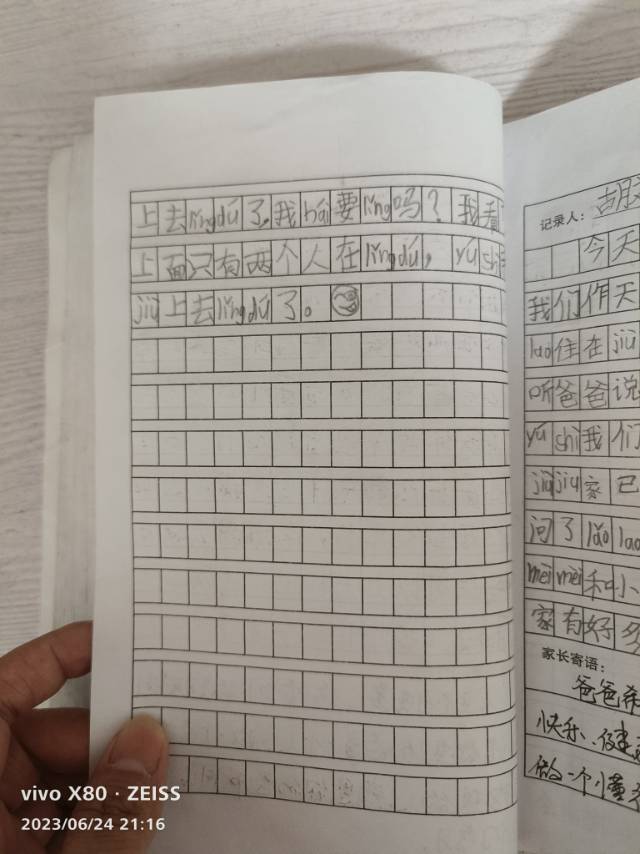 上去lǐngdú了,我hái要lǐng吗?我看
上面只有两个人在lǐngdú,yúshì
jiù上去lǐngdú了。
记录人:胡
今天
我们作天
lao住在jiù
听爸爸说
yú shì我们
jiùjiu家已
问了lǎo lao
mèi mei和小
家有好多
家长寄语:
爸爸希
快乐、健康
做一个懂
vivo X80 · ZEISS
2023/06/24 21:16